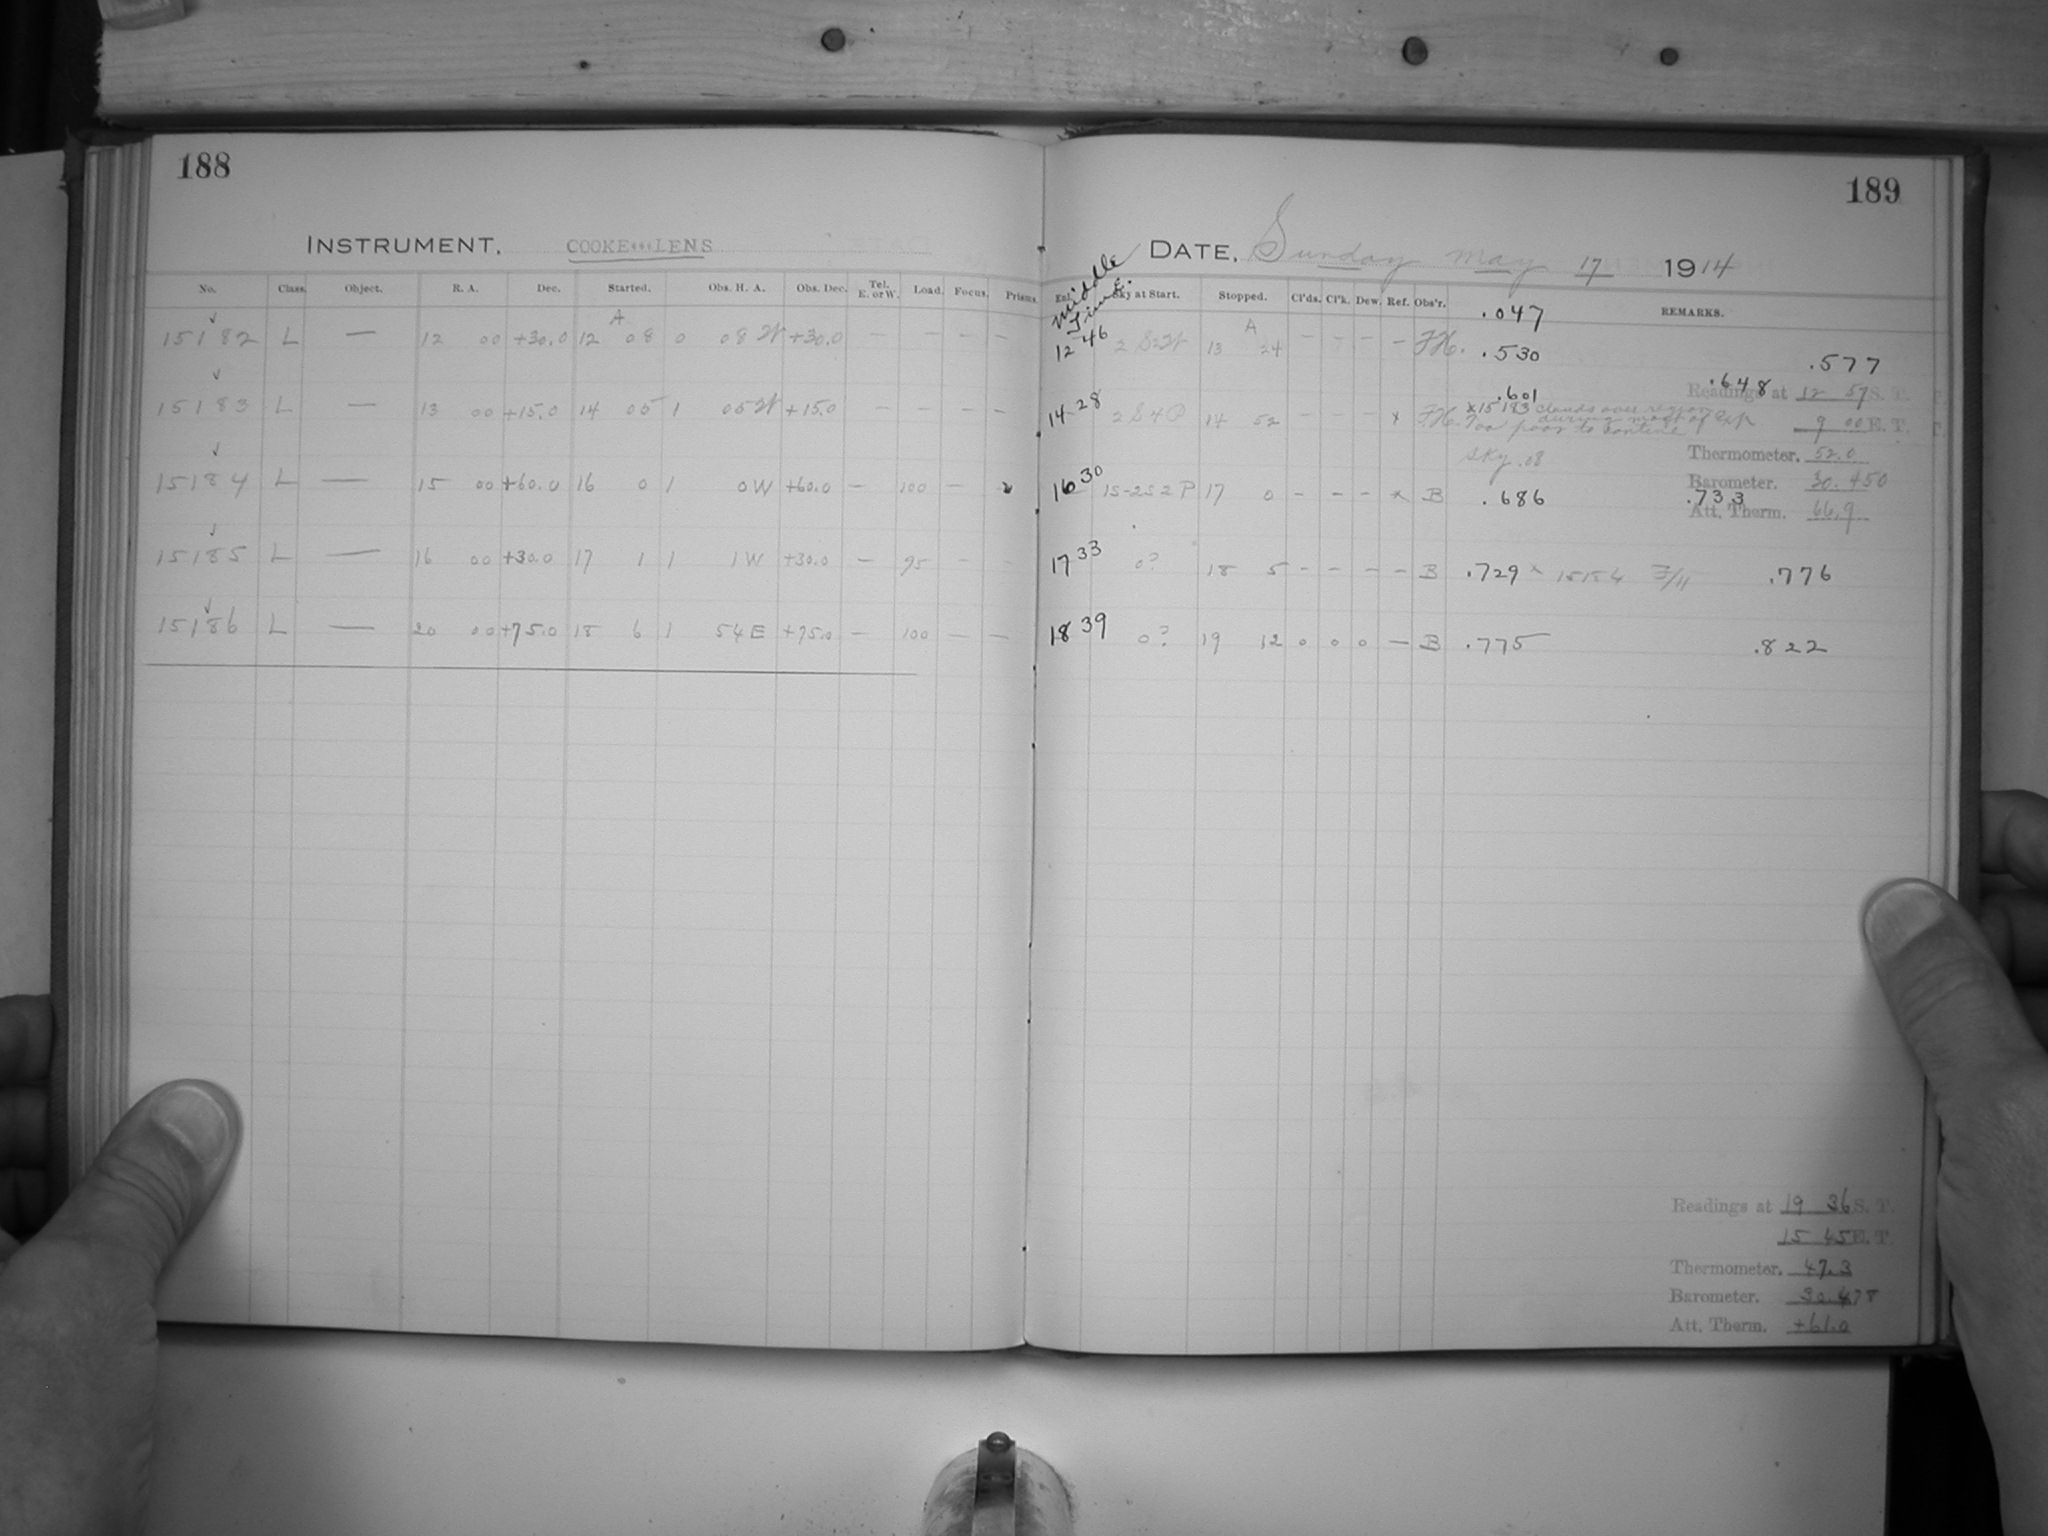 188
INSTRUMENT, COOKE LENS
No. Class. Object. R. A. Dec. Started. Obs. H. A. Obs. Dec. Tel. E. or W. Load. Focus. Prisms.
15182 L — 12 00 +30.0 12 A 08 0 08 W +30.0 — — — —
15183 L — 13 00 +15.0 14 05 1 05 W +15.0 — — — —
15184 L — 15 00 +60.0 16 0 1 0 W +60.0 — 100 —
15185 L — 16 00 +30.0 17 1 1 1 W +30.0 — 95 - -
15186 L — 20 00 +75.0 18 6 1 54 E +75.0 — 100 — —
189
DATE, Sunday May 17 1914
Middle Time.
Sky at Start. Stopped. Cl'ds. Cl'k. Dew. Ref. Obs'r. REMARKS.
.047
12 46 2 S2W 13 A 24 - - - - FH. .530 .577
.601 .648
14 28 2 S4P 14 52 - - - x FH. x15183 clouds over region during most of Exp
Too poor to continue
Sky .08
16 30 1S-2S 2 P 17 0 - - - x B .686 .733
17 33 0? 18 5 - - - - B .729 x 15184 .776
18 39 0? 19 12 0 0 0 — B .775 .822
Readings at 12 57 S. T.
9 00 E. T.
Thermometer. 52.0
Barometer. 30.450
Att. Therm. 66.9
Readings at 19 36 S. T.
15 45 E. T.
Thermometer. 47.3
Barometer. 30.478
Att. Therm. +61.0